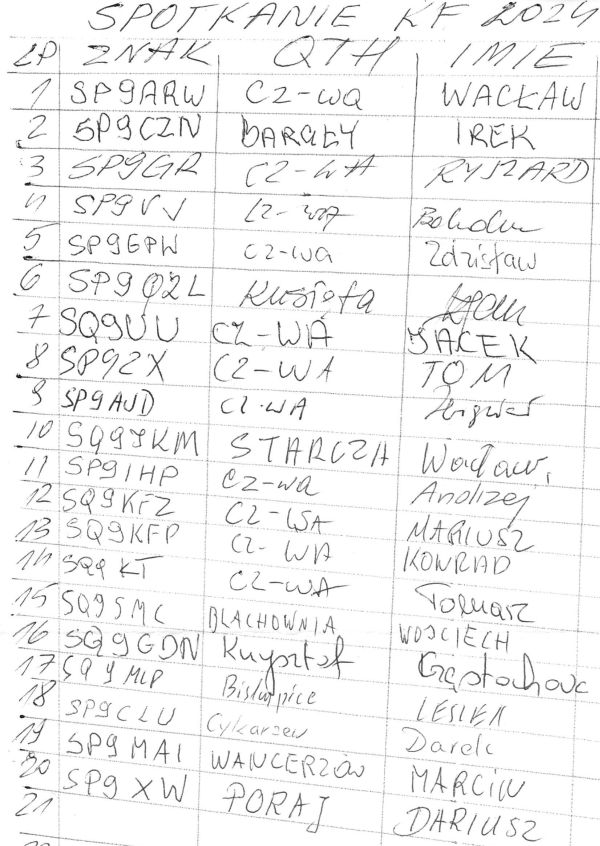 SPOTKANIE KF 2024
LP ZNAK QTH IMIE
1 SP9ARW CZ-wa WACŁAW
2 SP9CZN BARGŁY IREK
3 SP9GR CZ-WA RYSZARD
4 SP9VJ CZ-WA Bohdan
5 SP9EPW CZ-wa Zdzisław
6 SP9QZL Kusięta
7 SQ9UU CZ-WA JACEK
8 SP9ZX CZ-WA TOM
9 SP9AUD CZ-WA Zbigniew
10 SQ9JKM STARCZA Wacław.
11 SP9IHP CZ-wa Andrzej
12 SQ9KFZ CZ-WA MARIUSZ
13 SQ9KFP CZ-WA KONRAD
14 SQ9KT CZ-WA Tomasz
15 SQ9SMC BLACHOWNIA WOJCIECH
16 SQ9GDN Krzysztof Częstochowa
17 SQ9MLP Biskupice LESZEK
18 SP9CLU Cykarzew Darek
19 SP9MAI WANCERZÓW MARCIN
20 SP9XW PORAJ DARIUSZ
21